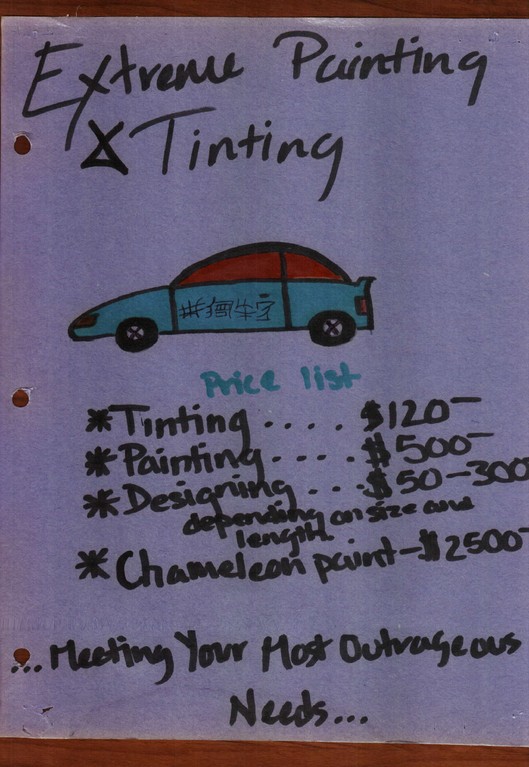 Extreme Painting
& Tinting
Price list
* Tinting .... $120-
* Painting .... $500-
* Designing ... $50-300-
depending on size and
length.
* Chameleon paint-$2500-
...Meeting Your Most Outrageous
Needs...